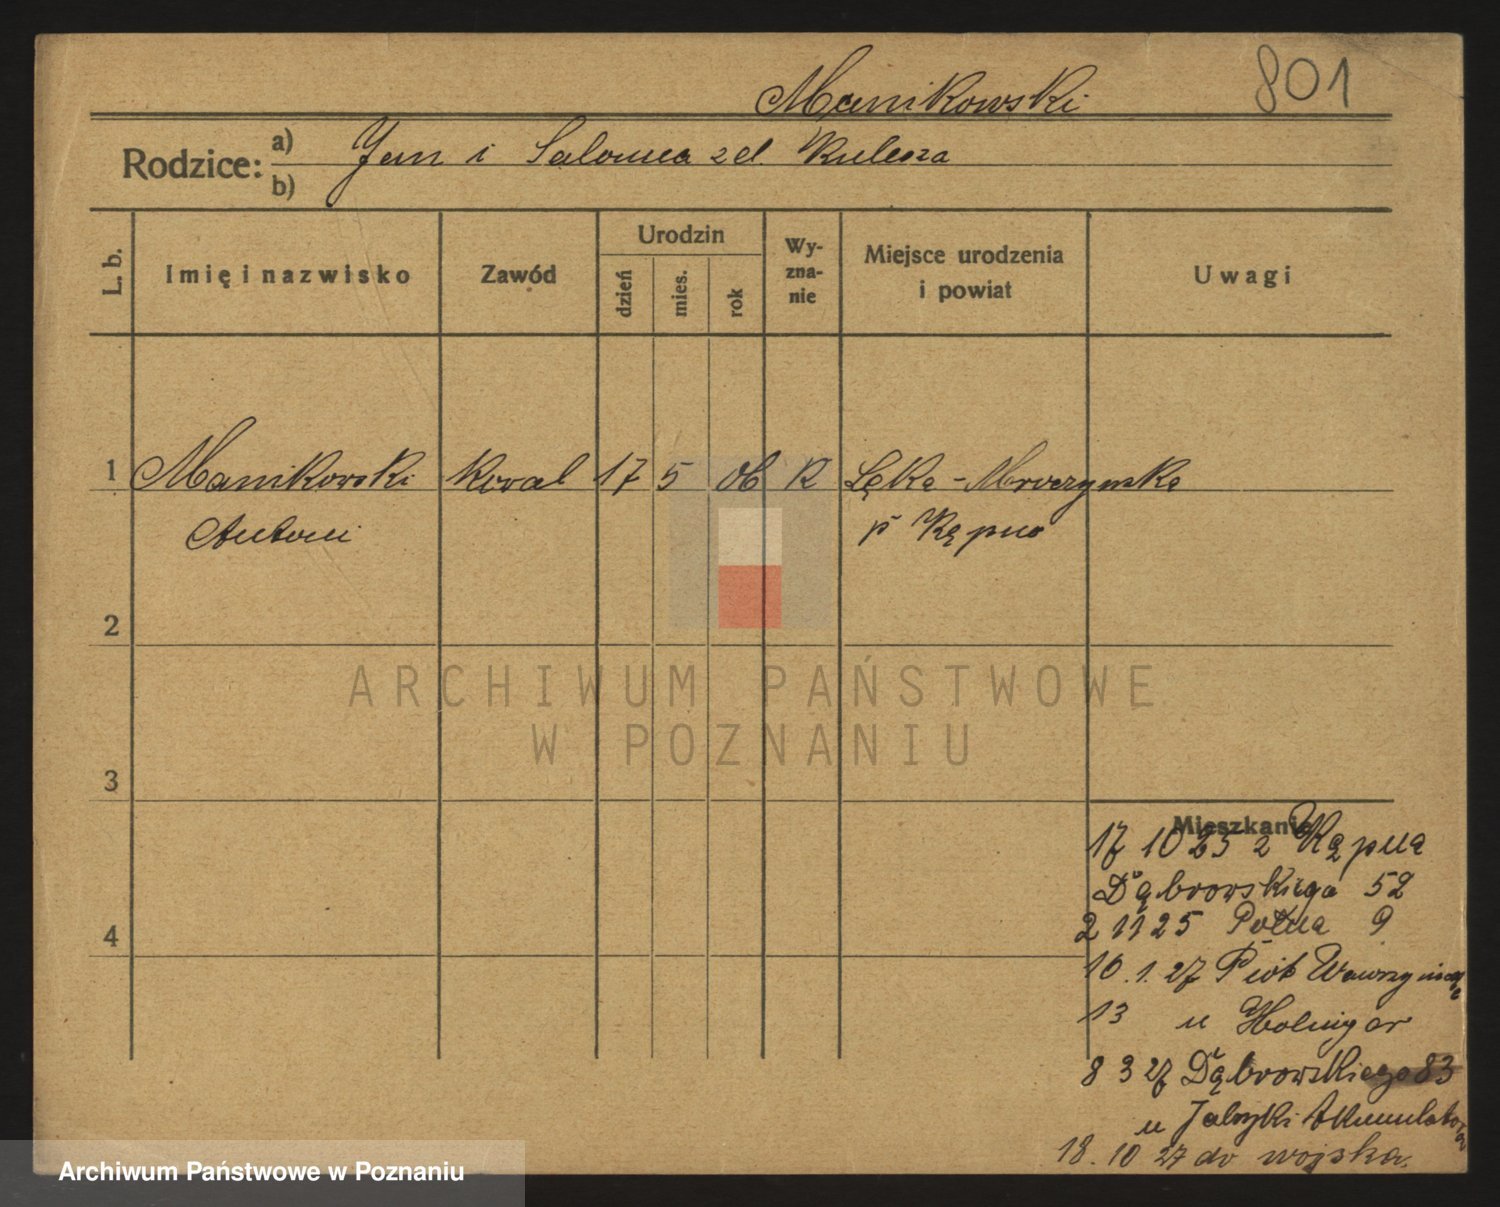 Manikowski 801
Rodzice: a) Jan i Salomea zd. Kulesza
b)
L. b. Imię i nazwisko Zawód Urodzin Wy-
zna-
nie Miejsce urodzenia
i powiat Uwagi
dzień mies. rok
1 Manikowski Koval 17 5 06 R Łęka - Mroczyńska
Antoni p Kępno
2
ARCHIWUM PAŃSTWOWE
W POZNANIU
3
Mieszkanie
17 10 25 z Kępna
Dąbrowskiego 52
4
2 11 25 Polna 9
10.1.27 Piot Wawrzyniaka
13 u
8 3 27 Dąbrowskiego 83
u
18.10 27 do wojska.
Archiwum Państwowe w Poznaniu